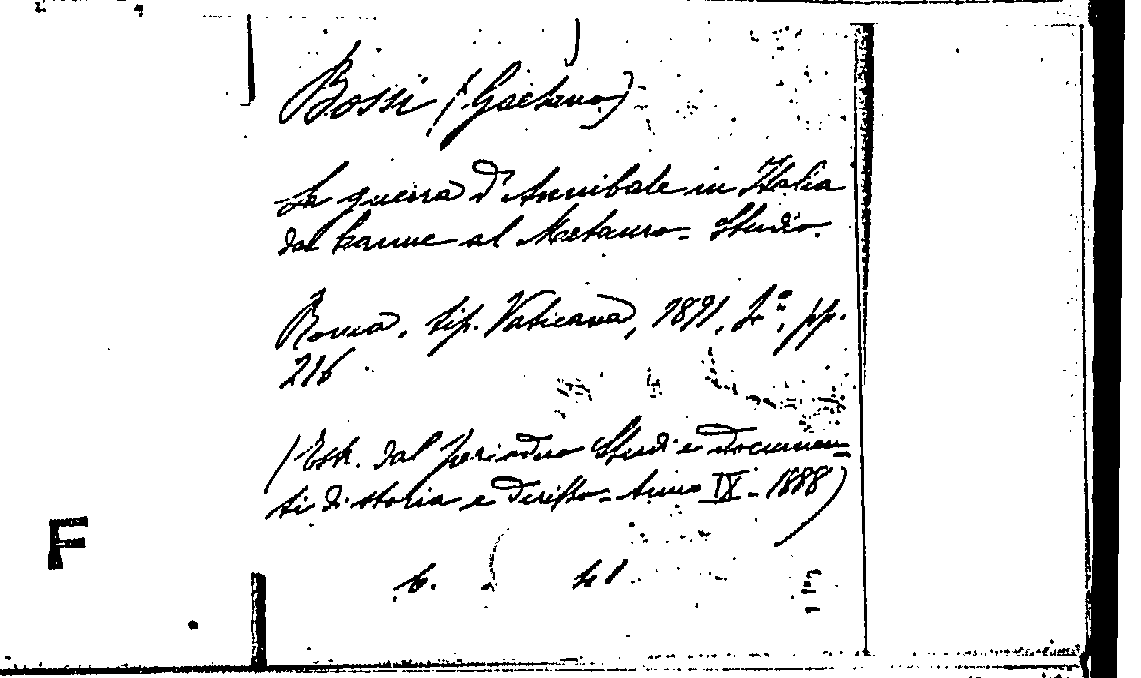 Bossi (Gaetano)
La guerra d'Annibale in Italia
da Canne al Metauro - Studio.
Roma, tip. Vaticana, 1891, 4°, pp.
216
(Estr. dal periodico Studi e documen=
ti di storia e diritto - Anno IX - 1888)
F